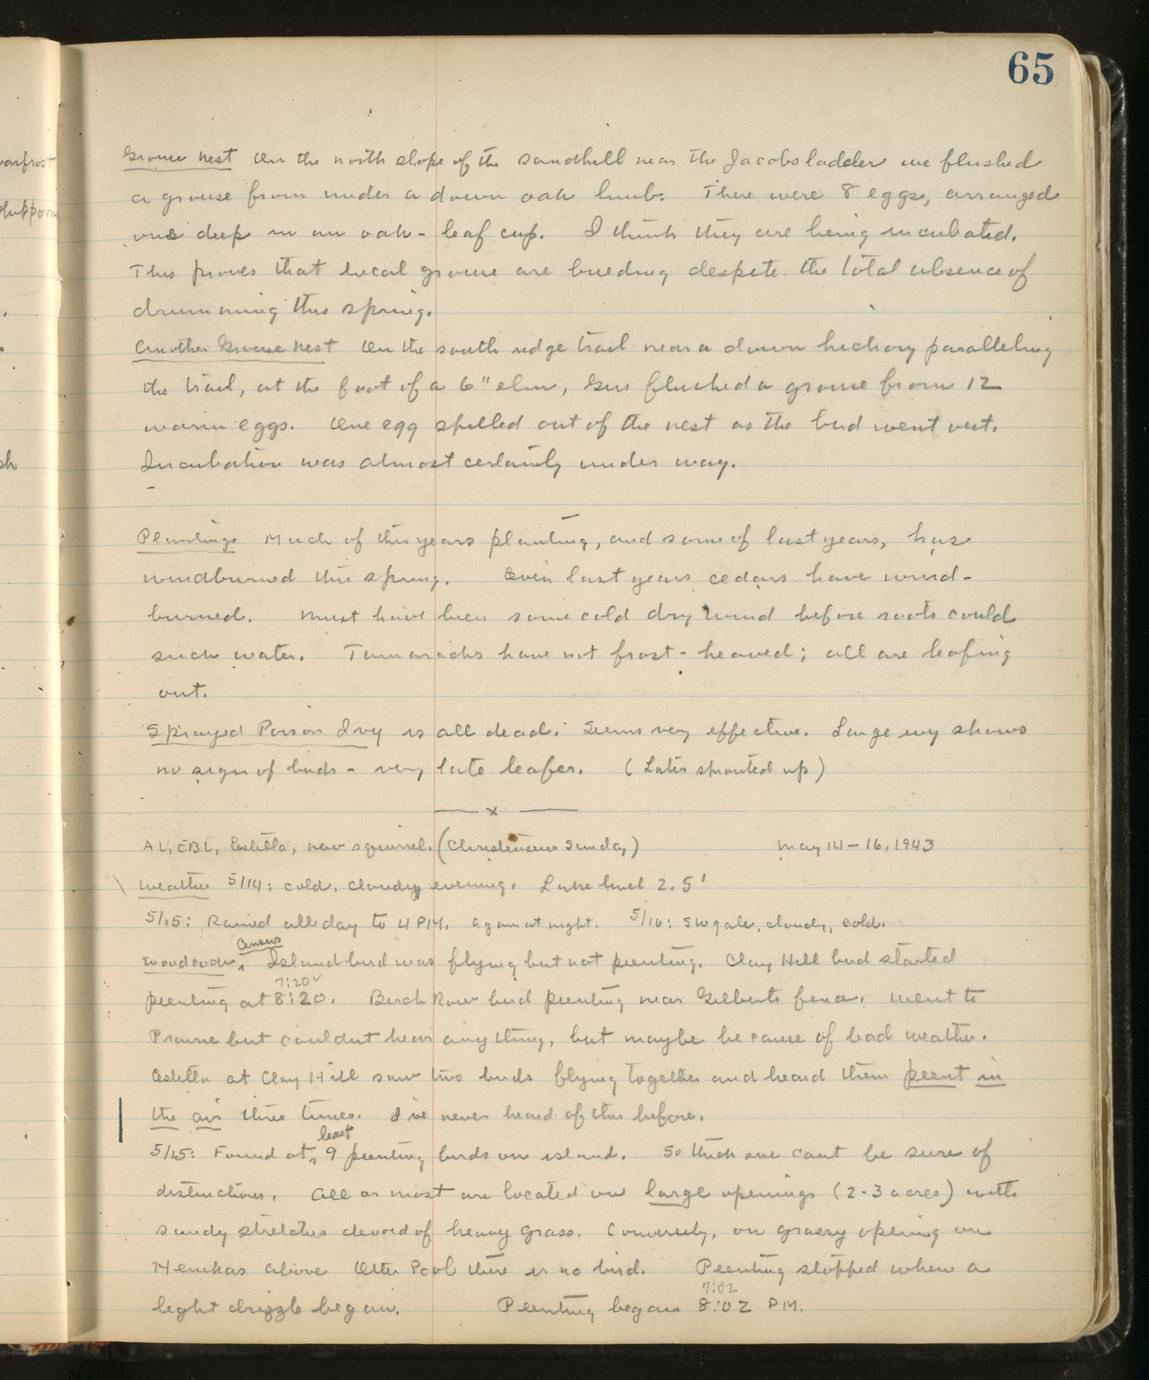 65
Grouse Nest On the north slope of the sandhill near the Jacobsladder we flushed
a grouse from under a down oak limb. There were 8 eggs, arranged
deep in an oak-leaf cup. I think they are being incubated.
This proves that local grouse are breeding despite the total absence of
drumming this spring.
Another Grouse Nest On the south ridge trail near a down hickory paralleling
the trail, at the foot of a 6" elm, Gus flushed a grouse from 12
warm eggs. One egg spilled out of the nest as the bird went out.
Incubation was almost certainly under way.
Plantings Much of this years planting, and some of last years, has
windburned this spring. Even last years cedars have wind-
burned. Must have been some cold dry wind before roots could
suck water. Tamaracks have not frost-heaved; all are leafing
out.
Sprayed Poison Ivy is all dead. Seems very effective. Large ivy shows
no sign of buds - very late leafer. (Later sprouted up)
x
AL, CBL, Estella, new squirrel. (Christensens Sunday) May 14-16, 1943
Weather 5/14: cold, cloudy evening. Lake level 2.5'
5/15: Rained all day to 4 PM. again at night. 5/16: SW gale, cloudy, cold.
Census
Woodcock. Island bird was flying but not peenting. Clay Hill bird started
7:20 ✓
peenting at 8:20. Birch Row bird peenting near Gilberts fence. Went to
Prairie but couldnt hear anything, but maybe because of bad weather.
Estella at Clay Hill saw two birds flying together and heard them peent in
the air three times. I've never heard of this before.
least
5/15: Found at 9 peenting birds on island. So thick one cant be sure of
distinctions. All or most are located on large openings (2-3 acres) with
sandy stretches devoid of heavy grass. Conversely, on grassy opening on
above Otter Pool there is no bird. Peenting stopped when a
7:02
light drizzle began. Peenting began 8:02 PM.